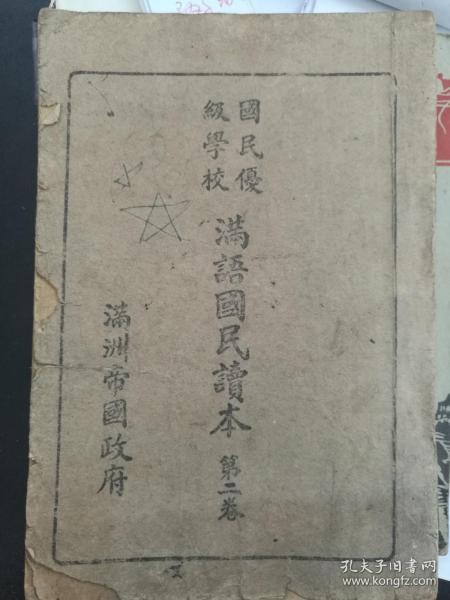 國民優
級學校
滿語國民讀本 第二卷
滿洲帝國政府
孔夫子旧书网
www.kongfz.com